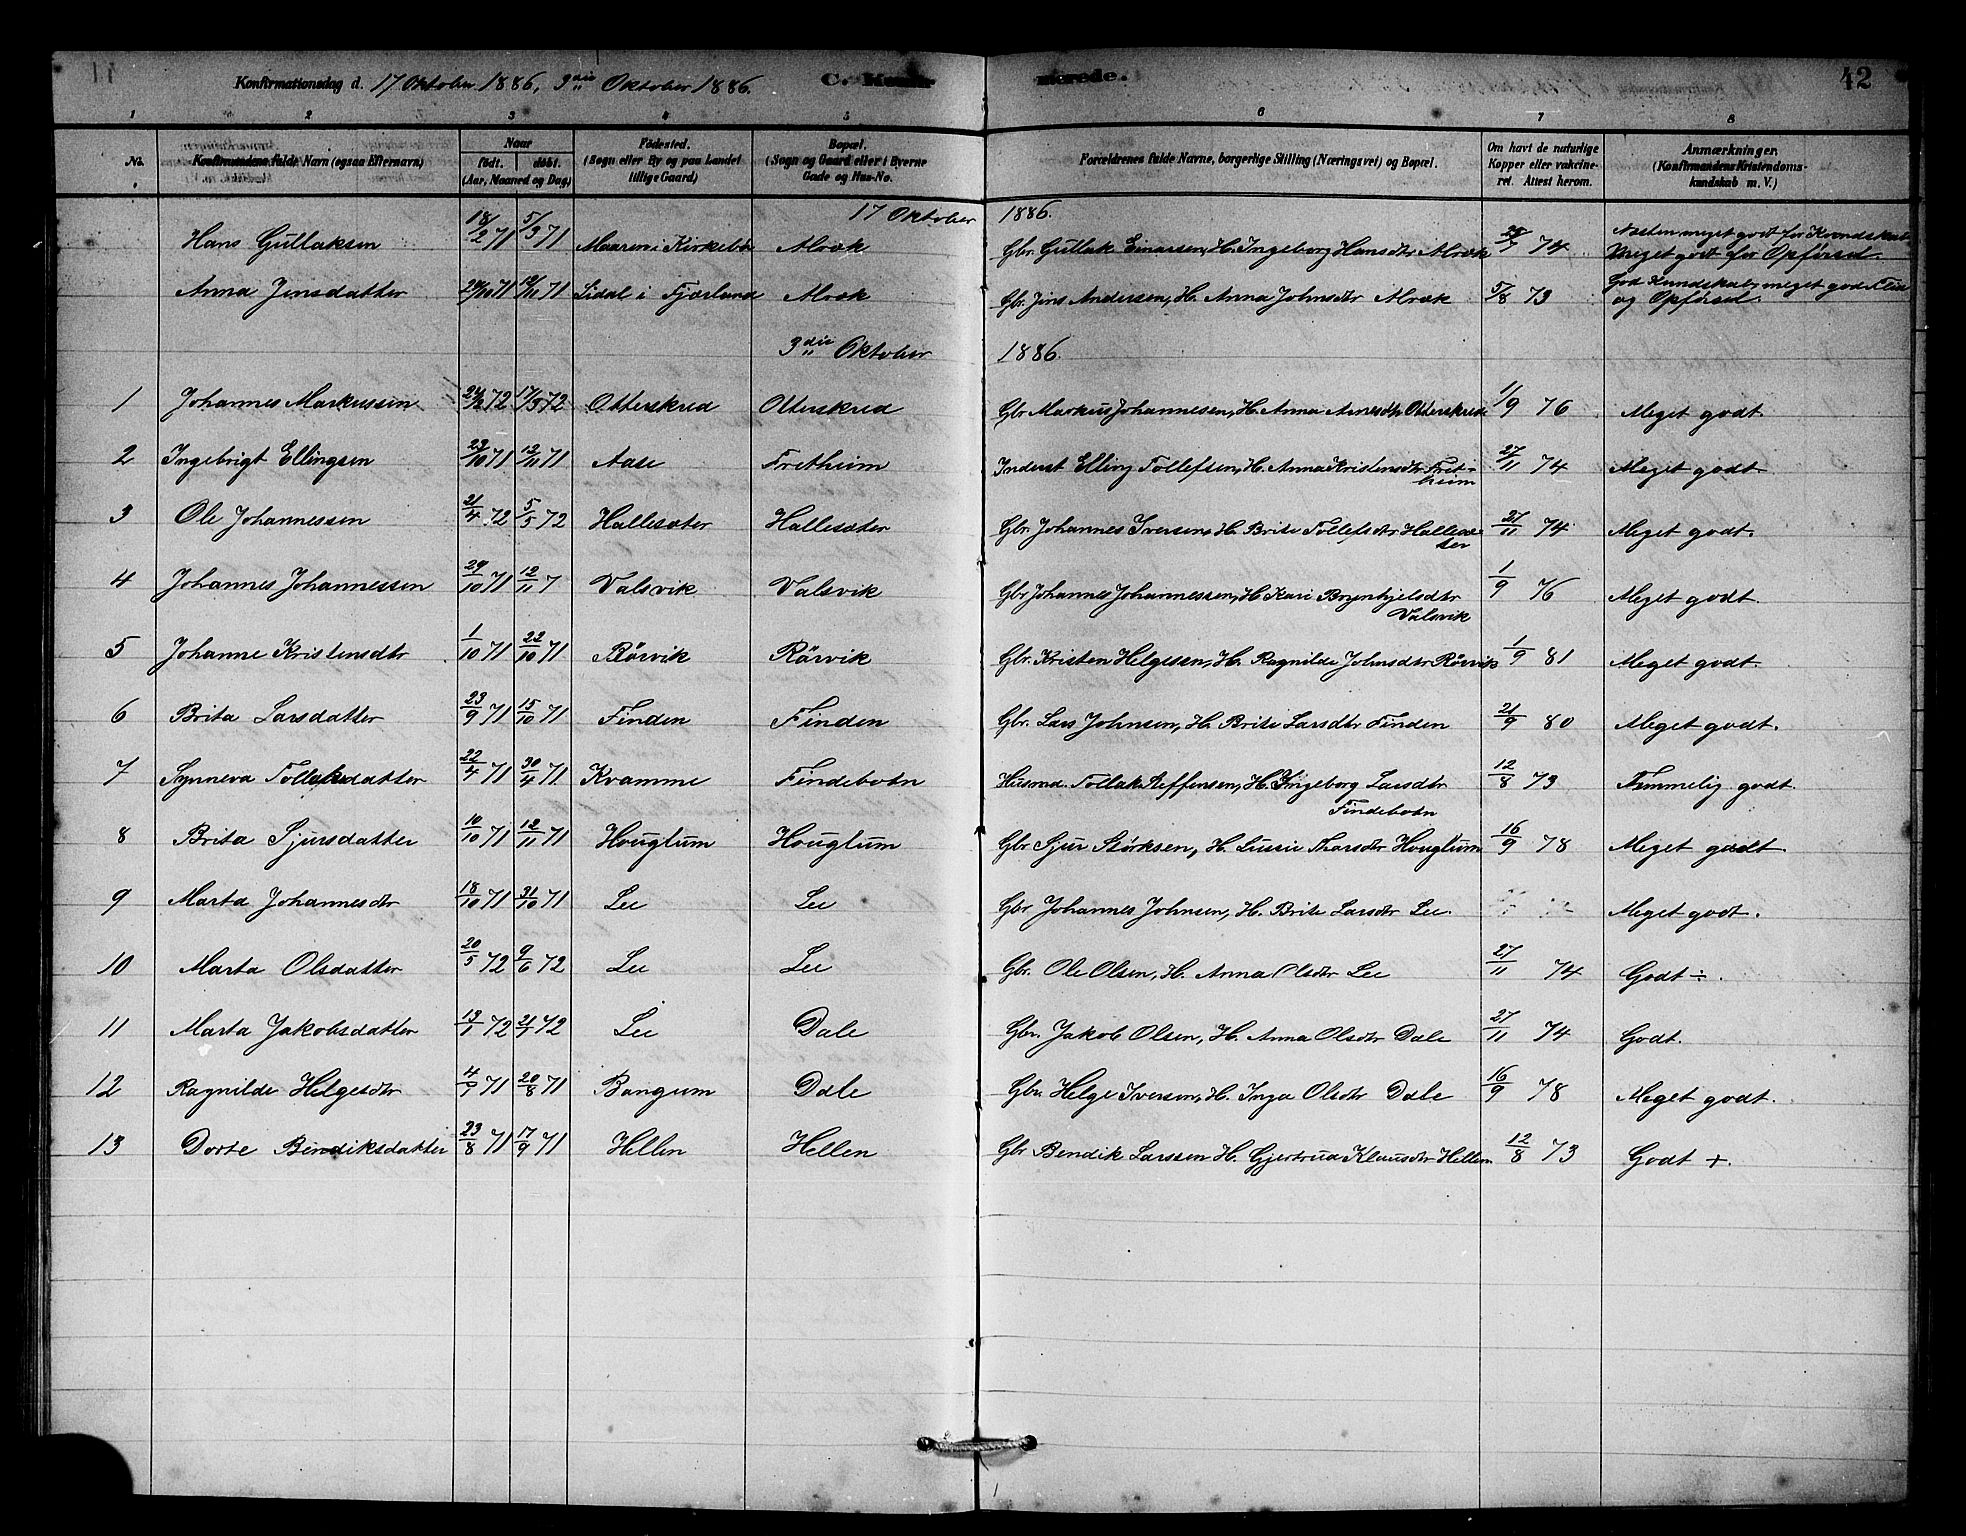 Konfirmationsdag d. 17 Oktober 1886, 3die Oktober 1886. C. Konfir merede. 42
1 2 3 4 5 6 7 8
No. Konfirmandens fulde Navn (ogsaa Efternavn) Naar født. døbt. (Aar, Maaned og Dag) Fødested. (Sogn eller By og paa Landet tillige Gaard) Bopæl. (Sogn og Gaard eller i Byerne Gade og Hus-No. Forældrenes fulde Navne, borgerlige Stilling (Næringsvei) og Bopæl. Om havt de naturlige Kopper eller vakcineret. Attest herom. Anmærkninger. (Konfirmandens Kristendomskundskab m. V.)
17 Oktober 1886.
Hans Gullaksen 18/2 71 5/3 71 Maaren i Kirkebø Alvæk Gbr. Gullak Einarsen, H. Ingeborg Hansdtr Alræk 74 Næsten meget godt for Kundskab
Meget godt for Opførsel.
Anna Jensdatter 71 71 Lidal i Fjærland Alræk Gbr. Jens Andersen, H. Anna Johnsdtr Alræk 5/8 73 God Kundskab, meget god Flid
og Opførsel.
3die Oktober 1886.
1 Johannes Markussen 72 17/3 72 Otterskred Otterskred Gbr Markus Johannesen, H. Anna Arnesdtr Otterskred 1/9 76 Meget godt.
2 Ingebrigt Ellingsen 23/10 71 12/11 71 Aase Fretheim Inderst Elling Tollefsen, H. Anna Kristensdtr Fret-
heim 27/11 74 Meget godt.
3 Ole Johannessen 21/4 72 5/5 72 Hallesæter Hallesæter Gbr. Johannes Iversen, H. Brite Tollefsdtr Hallesæ-
ter 27/11 74 Meget godt.
4 Johannes Johannessen 29/10 71 12/11 7 Valsvik Valsvik Gbr Johannes Johannessen, H. Kari Brynhjelsdtr
Valsvik 1/9 76 Meget godt.
5 Johanne Kristensdtr 1/10 71 22/10 71 Rørvik Rørvik Gbr. Kristen Helgesen, H. Ragnilde Johnsdtr Rørvik 1/9 81 Meget godt.
6 Brita Larsdatter 23/9 71 15/10 71 Finden Finden Gbr. Lars Johnsen, H. Brite Larsdtr Finden 21/9 80 Meget godt.
7 Synneva Tollaksdatter 22/4 71 30/4 71 Kvamme Findebotn Husmd. Tollak Steffensen, H. Ingeborg Larsdtr
Findebotn 12/8 73 Temmelig godt.
8 Brita Sjursdatter 10/10 71 12/11 71 Houglum Houglum Gbr Sjur Størksen, H. Lussie Tharsdtr Houglum 16/9 78 Meget godt
9 Marta Johannesdtr 18/10 71 31/10 71 Lee Lee Gbr Johannes Johnsen, H. Brite Larsdtr Lee. Meget godt.
10 Marta Olsdatter 20/5 72 9/6 72 Lee Lee Gbr. Ole Olsen, H. Anna Olsdtr Lee 27/11 74 Godt ÷.
11 Marta Jakobsdatter 13/1 72 21/1 72 Lee Dale Gbr. Jakob Olsen, H. Anna Olsdtr Dale 27/11 74 Godt.
12 Ragnilde Helgesdtr 4/7 71 20/8 71 Bangum Dale Gbr. Helge Iversen, H. Inga Olsdtr Dale 16/9 78 Meget godt.
13 Dorte Bendiksdatter 23/8 71 17/9 71 Hellen Hellen Gbr Bendik Larssen H. Gjertrud Klausdtr Hellen 12/8 73 Godt +.